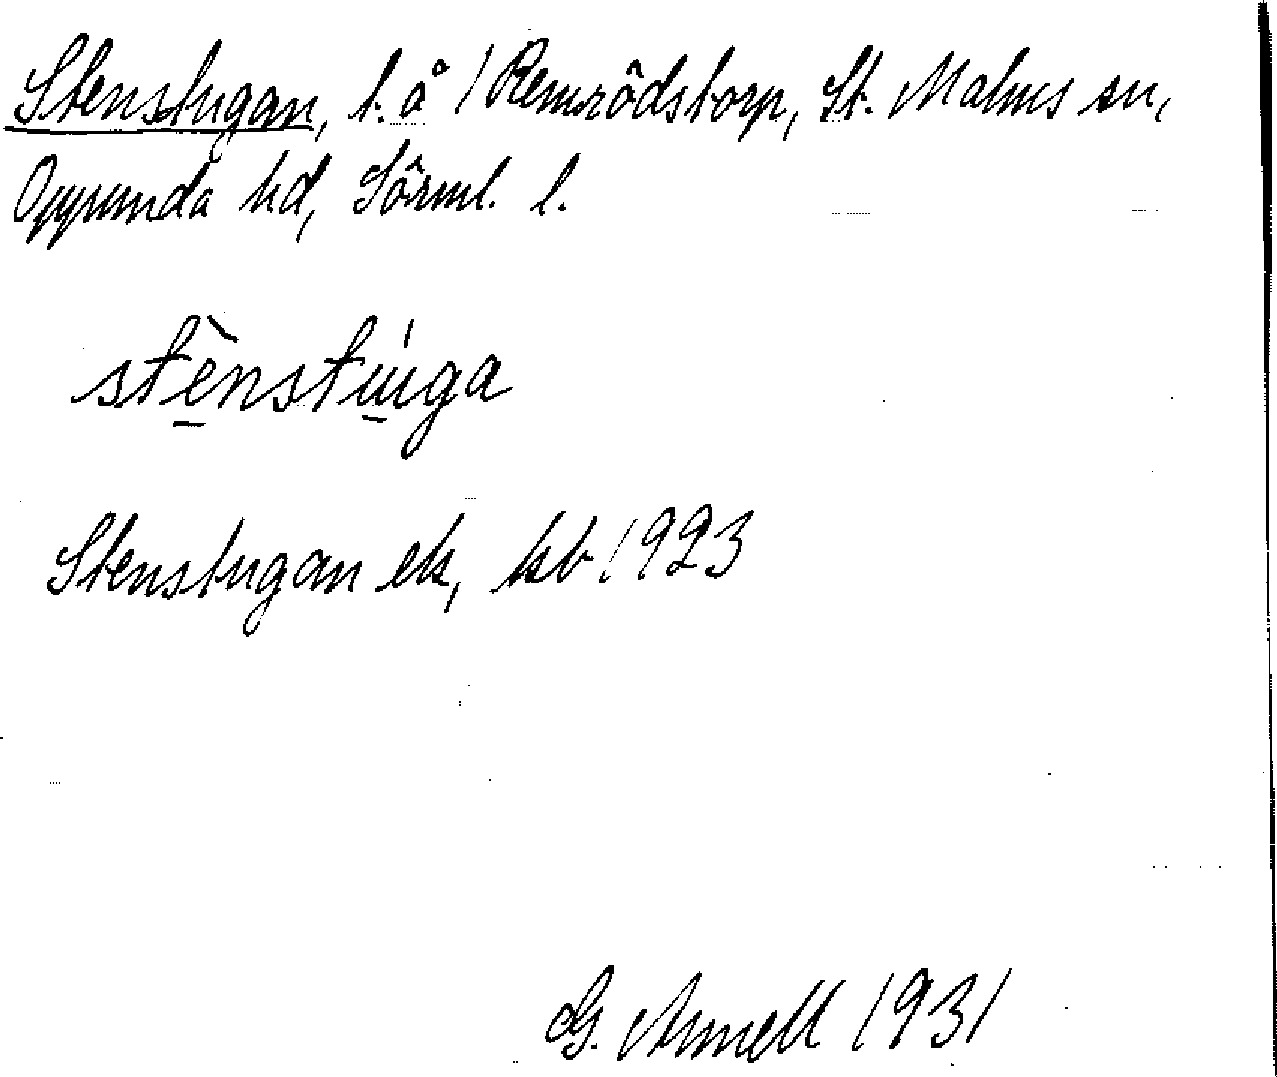 Stenstugan, t. å 1 Remrödstorp, St. Malms sn,
Oppunda hd, Sörml. l.
stènstúga
Stenstugan ek, kb 1923
G. Armell 1931